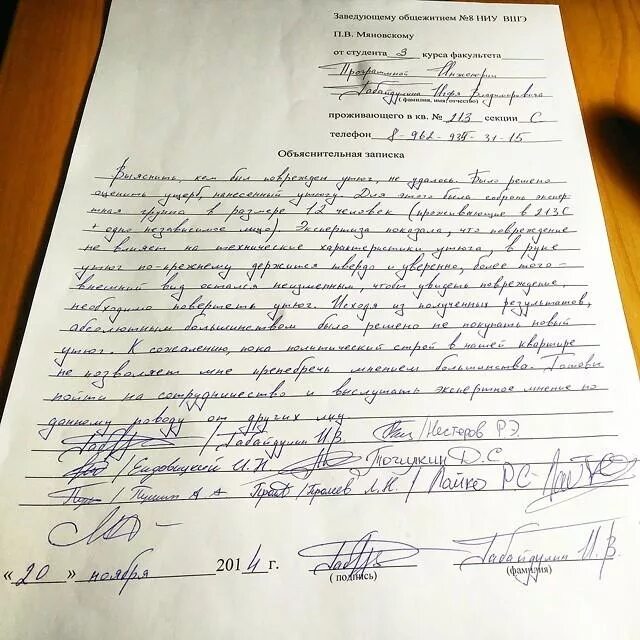 Заведующему общежитием №8 НИУ ВШЭ
П.В. Мяновскому
от студента 3 курса факультета
Программной Инженерии
Габайдулина Игоря Владимировича
( фамилия, имя отчество)
проживающего в кв. № 213 секции С
телефон 8-962-934-31-15
Объяснительная записка
Выяснить, кем был поврежден утюг, не удалось. Было решено
оценить ущерб, нанесенный утюгу. Для этого была собрана экспер-
тная группа в размере 12 человек (проживающие в 213С
+ одно независимое лицо). Экспертиза показала, что повреждение
не влияет на технические характеристики утюга, в руке
утюг по-прежнему держится твердо и уверенно, более того -
внешний вид остался неизменным, чтобы увидеть повреждение,
необходимо повертеть утюг. Исходя из полученных результатов,
абсолютным большинством было решено не покупать новый
утюг. К сожалению, пока политический строй в нашей квартире
не позволяет мне пренебречь мнением большинства. Готовы
пойти на сотрудничество и выслушать экспертное мнение по
данному поводу от других лиц
/ Габайдулин И.В. /Нестеров Р.Э.
/ Ендовицкий И.И. Точилкин Д.С.
/ Пушин А А / Громов Л.И. / Лайко РС
« 20 » ноября 2014 г. Габайдулин И.В.
( подпись) (фамилия)